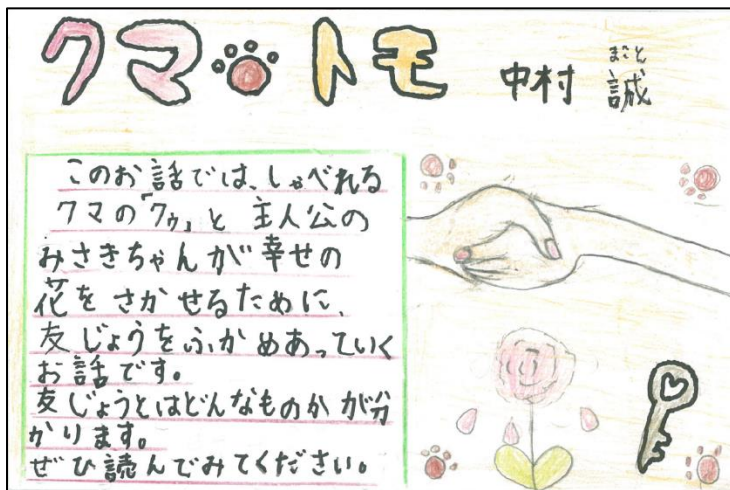 クマトモ
中村 誠
まこと
このお話では、しゃべれる
クマの「クゥ」と主人公の
みさきちゃんが幸せの
花をさかせるために、
友じょうをふかめあっていく
お話です。
友じょうとはどんなものかが分
かります。
ぜひ読んでみてください。